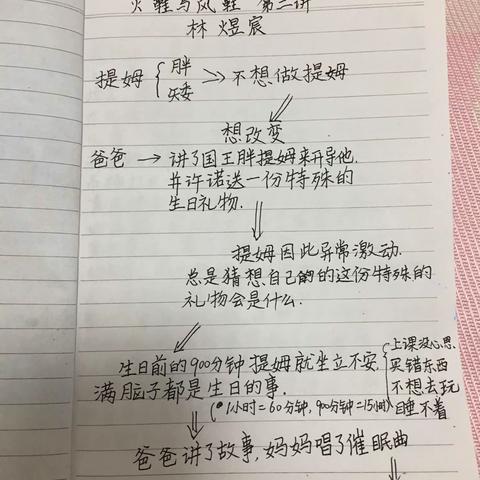 火鞋与风鞋 第二讲
林煜宸
提姆 { 胖 矮 >> 不想做提姆
想改变
爸爸 → 讲了国王胖提姆来开导他.
并许诺送一份特殊的
生日礼物.
提姆因此异常激动.
总是猜想自己的的这份特殊的
礼物会是什么.
生日前的900分钟提姆就坐立不安,
满脑子都是生日的事.
上课没心思
买错东西
不想去玩
睡不着
(•1小时=60分钟,900分钟=15小时)
爸爸讲了故事,妈妈唱了催眠曲